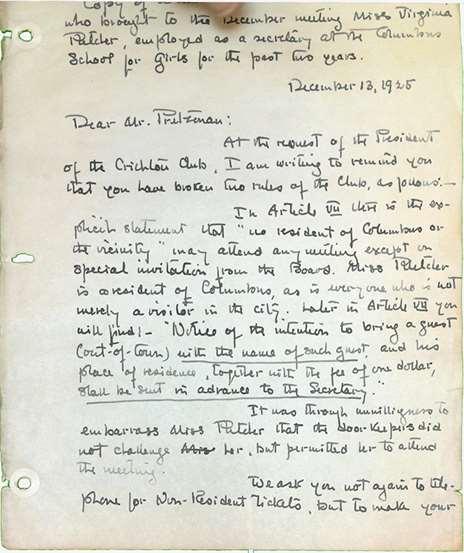 Copy of
who brought to the December meeting Miss Virginia
Fletcher, employed as a secretary at the Columbus
School for Girls for the past two years.
December 13, 1925
Dear Mr. Pretzman:
At the request of the President
of the Crichton Club, I am writing to remind you
that you have broken two rules of the Club, as follows:—
In Article VII there is the ex-
plicit statement that "no resident of Columbus or
the vicinity" may attend any meeting except on
special invitation from the Board. Miss Fletcher
is a resident of Columbus, as is everyone who is not
merely a visitor in the city. Later in Article VII you
will find:— "Notice of the intention to bring a guest
(out-of-town) with the name of such guest, and his
place of residence, together with the fee of one dollar,
shall be sent in advance to the Secretary."
It was through unwillingness to
embarrass Miss Fletcher that the door-keepers did
not challenge her, but permitted her to attend
the meeting.
We ask you not again to tele-
phone for Non-Resident Tickets, but to make your